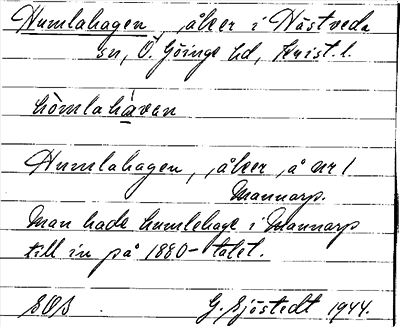 Humlahagen, åker i Hästveda
sn, Ö. Göinge hd, Krist. l.
hömlahàvan
Humlahagen, åker, å nr 1
Mannarp.
Man hade humlehage i Mannarp
till in på 1880-talet.
G. Sjöstedt 1944.